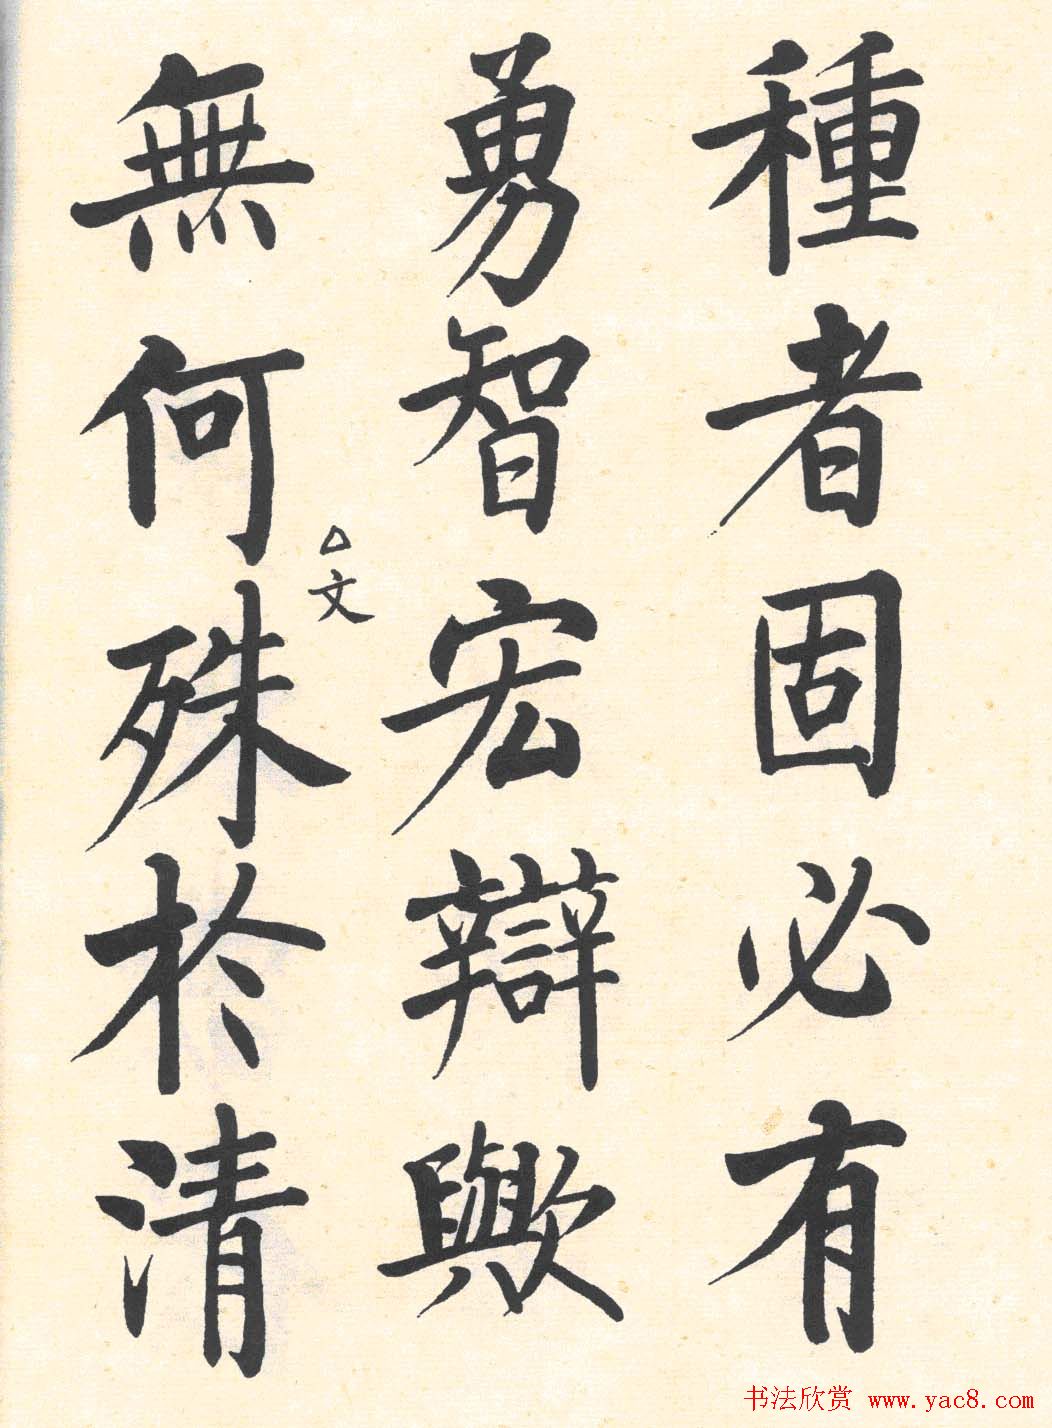 種者固必有
勇智宏辯歟
無何殊於清
文
书法欣赏 www.yac8.com